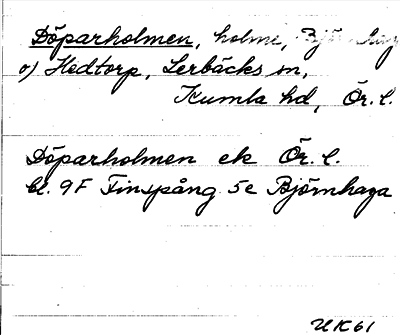 Döparholmen, holme, Björnhaga
o) Hedtorp, Lerbäcks sn,
Kumla hd, Ör. l.
Döparholmen ek Ör. l.
bl. 9F Finspång 5e Björnhaga
UK61